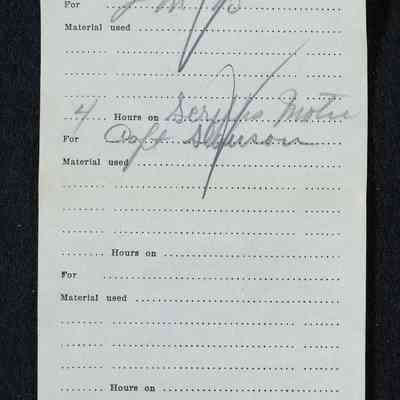 For
Material used
4 Hours on Scripps Motor
For Capt
Material used
Hours on
For
Material used
Hours on